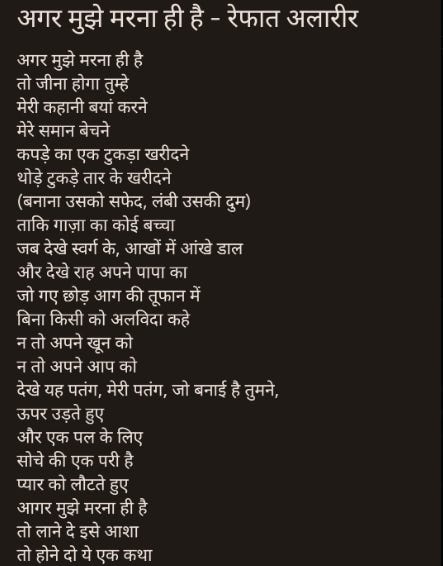 अगर मुझे मरना ही है - रेफात अलारीर
अगर मुझे मरना ही है
तो जीना होगा तुम्हे
मेरी कहानी बयां करने
मेरे समान बेचने
कपड़े का एक टुकड़ा खरीदने
थोड़े टुकड़े तार के खरीदने
(बनाना उसको सफेद, लंबी उसकी दुम)
ताकि गाज़ा का कोई बच्चा
जब देखे स्वर्ग के, आखों में आंखे डाल
और देखे राह अपने पापा का
जो गए छोड़ आग की तूफान में
बिना किसी को अलविदा कहे
न तो अपने खून को
न तो अपने आप को
देखे यह पतंग, मेरी पतंग, जो बनाई है तुमने,
ऊपर उड़ते हुए
और एक पल के लिए
सोचे की एक परी है
प्यार को लौटते हुए
आगर मुझे मरना ही है
तो लाने दे इसे आशा
तो होने दो ये एक कथा